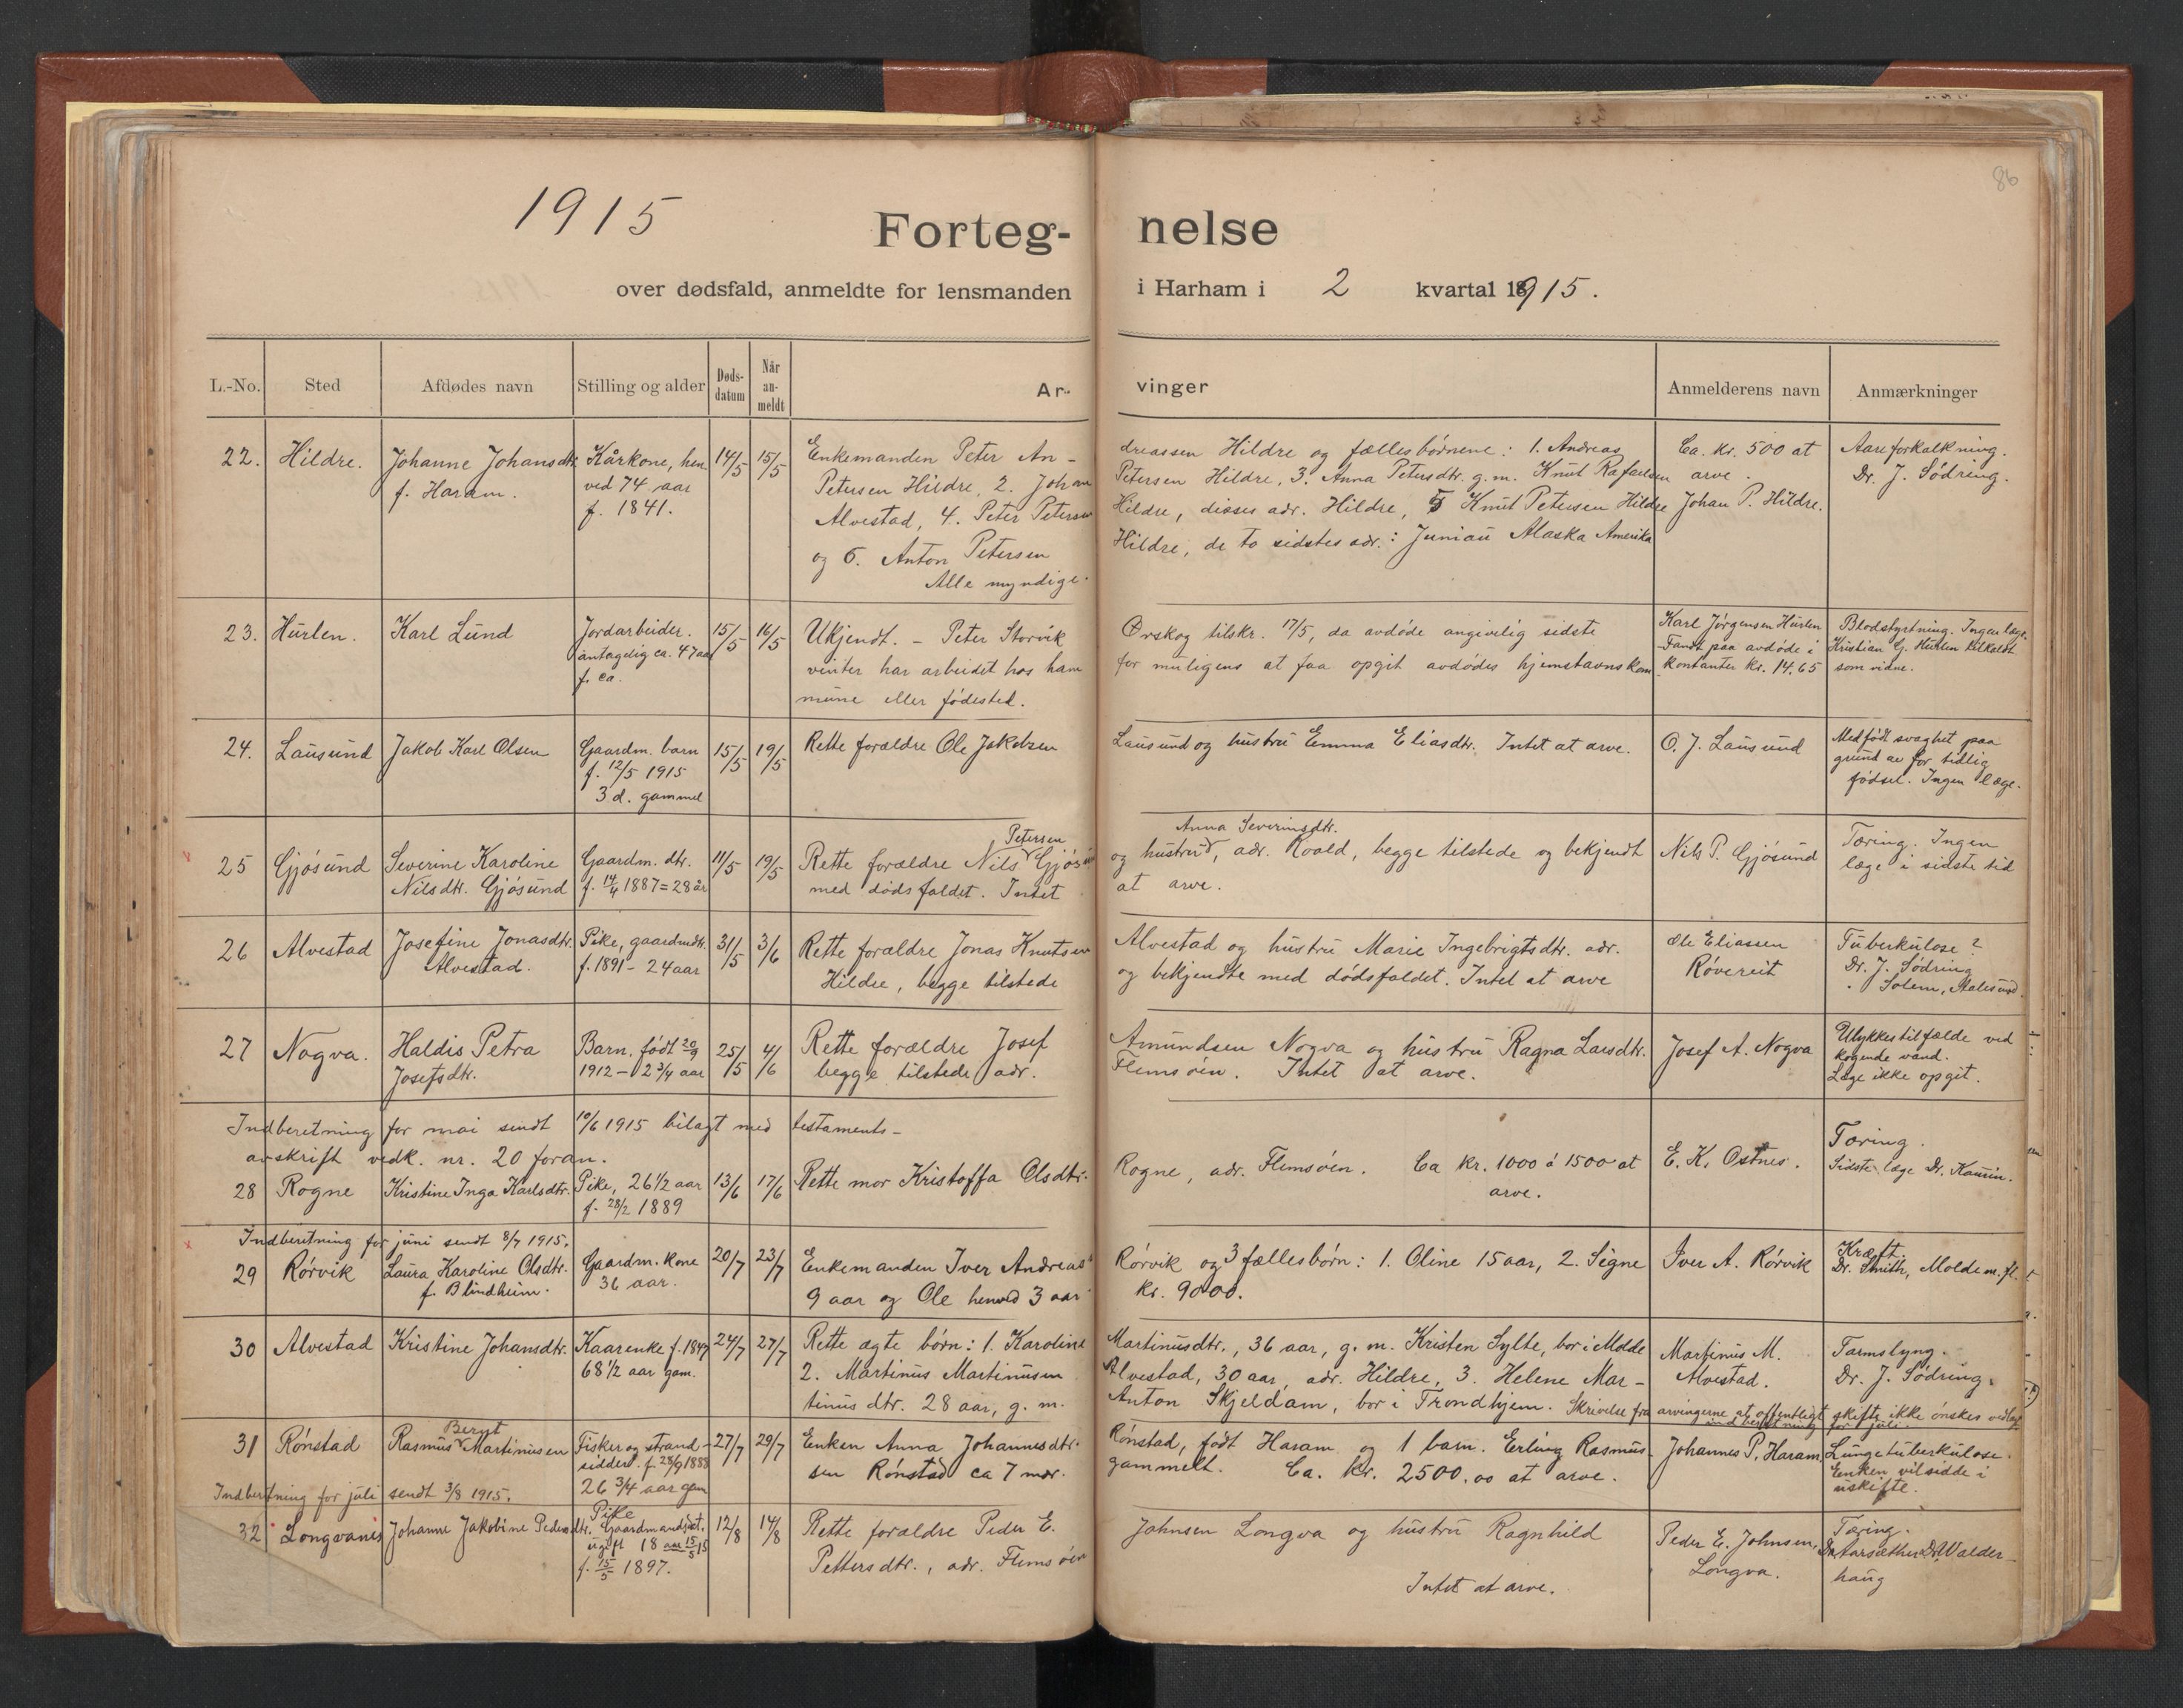 86
1915
Forteg-
nelse
over dødsfald, anmeldte for lensmanden
i Harham i 2 kvartal 1915.
L.-No. Sted Afdødes navn Stilling og alder Døds-datum Når an-meldt Ar-
vinger Anmelderens navn Anmærkninger
22. Hildre. Johanne Johansdtr. Kårkone, hen 14/5 15/5 Enkemanden Peter An-
f. Haram. ved 74 aar Petersen Hildre, 2. Johan
f. 1841. Alvestad, 4. Peter Petersen
og 6. Anton Petersen
Alle myndige.
dreassen Hildre og fællesbørnene: 1. Andreas Ca. kr. 500 at Aareforkalkning.
Petersen Hildre, 3. Anna Petersdtr. g. m. Knut Rafaelsen arve. Dr. J. Sødring.
Hildre, disses adr. Hildre, 5 Knut Petersen Hildre Johan P. Hildre.
Hildre, de to sidstes adr.: Juniau Alaska Amerika
23. Hurlen. Karl Lund Jordarbeider. 15/5 16/5 Ukjendt. - Peter Storvik
antagelig ca. 47 aar vinter har arbeidet hos ham
f. ca. mune eller fødested.
Ørskog tilskr. 17/5, da avdøde angivelig sidste Karl Jørgensen Hurlen Blodstyrtning. Ingen læge.
for muligens at faa opgit avdødes hjemstavnskom Fandt paa avdøde i Kristian G. Hurlen tilkaldt
kontanter kr. 14.65 som vidne.
24. Lausund Jakob Karl Olsen Gaardm. barn 15/5 19/5 Rette forældre Ole Jakobsen
f. 12/5 1915
3 d. gammel
Lausund og hustru Emma Eliasdtr. Intet at arve. O. J. Lausund Medfødt svaghet paa
grund av for tidlig
fødsel. Ingen læge.
25 Gjøsund Severine Karoline Gaardm. dtr. 11/5 19/5 Rette forældre Nils Petersen Gjøsund
Nilsdtr. Gjøsund f. 14/4 1887 = 28 år med dødsfaldet. Intet
og hustru Anna Severinsdtr., adr. Roald, begge tilstede og bekjendt Nils P. Gjøsund Tæring. Ingen
at arve. læge i sidste tid
26 Alvestad Josefine Jonasdtr. Pike, gaardmdtr. 31/5 3/6 Rette forældre Jonas Knutsen
Alvestad. f. 1891 - 24 aar Hildre, begge tilstede
Alvestad og hustru Marie Ingebrigtsdtr. adr. Ole Eliassen Tuberkulose?
og bekjendte med dødsfaldet. Intet at arve Røvereit Dr. J. Sødring
" Solem, Aalesund.
27 Nogva. Haldis Petra Barn, født 20/9 25/5 4/6 Rette forældre Josef
Josefsdtr. 1912 - 2 3/4 aar begge tilstede, adr.
Amundsen Nogva og hustru Ragna Larsdtr. Josef A. Nogva Ulykkestilfælde ved
Flemsøen. Intet at arve. kogende vand.
Læge ikke opgit.
Indberetning for mai sendt 10/6 1915 bilagt med testaments-
avskrift vedk. nr. 20 foran.
28 Rogne Kristine Inga Karlsdtr. Pike, 26 1/2 aar 13/6 17/6 Rette mor Kristoffa Olsdtr.
f. 28/2 1889
Rogne, adr. Flemsøen. Ca kr. 1000 à 1500 at E. K. Ostnes. Tæring.
arve. Sidste læge Dr. Kaurin.
Indberetning for juni sendt 8/7 1915.
29 Rørvik Laura Karoline Olsdtr. Gaardm. kone 20/7 23/7 Enkemanden Iver Andreas
f. Blindheim. 36 aar. 9 aar og Ole henved 3 aar
Rørvik og 3 fællesbørn: 1. Oline 15 aar, 2. Signe Iver A. Rørvik Kræft.
kr. 9000. Dr. Smith, Molde m. fl.
30 Alvestad Kristine Johansdtr. Kaarenke f. 1847 24/7 27/7 Rette ægte børn: 1. Karoline
68 1/2 aar gam. 2. Martinus Martinusen
tinusdtr. 28 aar, g. m.
Martinusdtr., 36 aar, g. m. Kristen Sylte, bor i Molde Martinus M. Tarmslyng.
Alvestad, 30 aar, adr. Hildre, 3. Helene Mar- Alvestad. Dr. J. Sødring.
Anton Skjeldam, bor i Trondhjem. Skrivelse fra arvingerne at offentligt skifte ikke ønskes vedlagt
indberetning for juli.
31 Rønstad Rasmus Bernt Martinusen Fisker og strand- 27/7 29/7 Enken Anna Johannesdtr.
sidder. f. 28/9 1888 sen Rønstad ca 7 mdr.
26 3/4 aar gam
Rønstad, født Haram og 1 barn. Erling Rasmus- Johannes P. Haram Lungetuberkulose.
gammelt. Ca. kr. 2500.00 at arve. Enken vil sidde i
uskifte.
Indberetning for juli sendt 3/8 1915.
32 Longvanes Johanne Jakobine Pedersdtr. Pike 12/8 14/8 Rette forældre Peder E.
Gaardmandsdt. Pettersdtr., adr. Flemsøen
ugift 18 aar 15/5 15
f. 15/5 1897.
Johnsen Longva og hustru Ragnhild Peder E. Johnsen, Tæring.
Intet at arve. Longva. Dr. Aarsæther, Dr. Walder-
haug